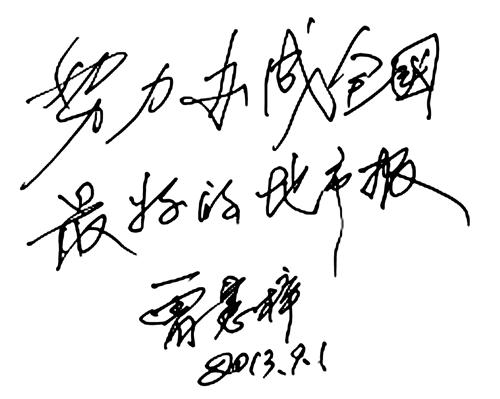 努力办成全國
最好的地市报
2013.9.1